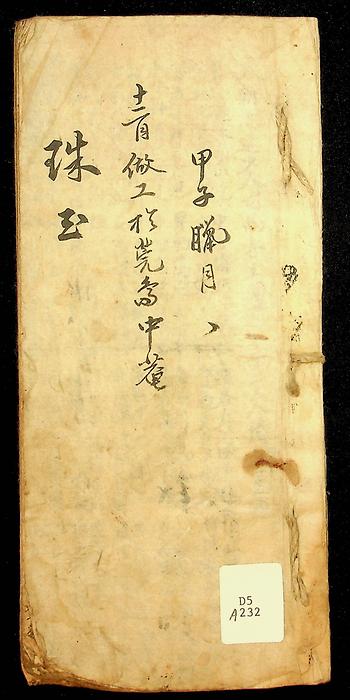 甲子臘月
十二月做工於莞島中菴
珠玉
D5
A232